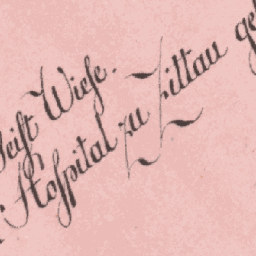 Geist Wiese.
Hospital zu Zittau